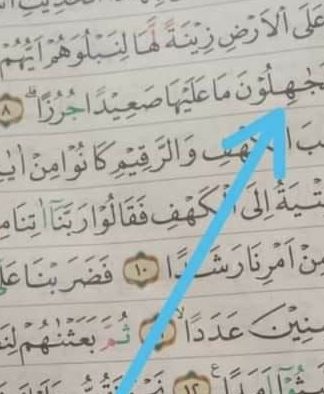 عَلَى الْاَرْضِ زِيْنَةً لَّهَا لِنَبْلُوَهُمْ اَيُّهُمْ
جٰهِلُوْنَ مَا عَلَيْهَا صَعِيْدًا جُرُزًاۗ ٨
الْكَهْفِ وَالرَّقِيْمِ كَانُوْا مِنْ
اِلَى الْكَهْفِ فَقَالُوْا رَبَّنَآ اٰتِنَا
مِنْ اَمْرِنَا رَشَدًا ١٠ فَضَرَبْنَا
سِنِيْنَ عَدَدًاۙ ثُمَّ بَعَثْنٰهُمْ
١٢